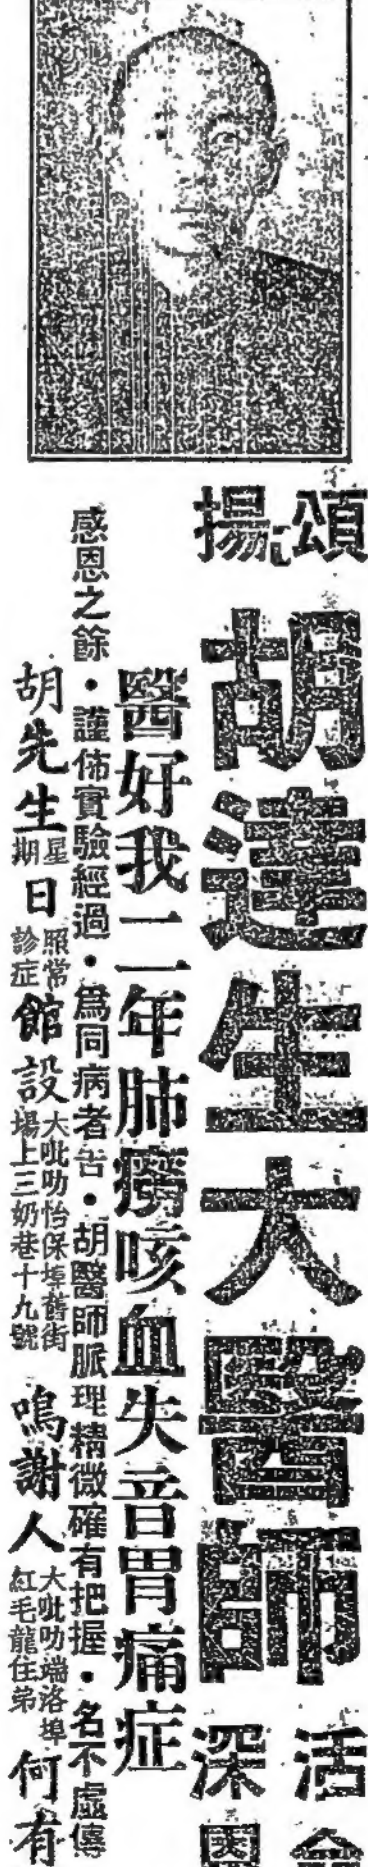 頌揚
胡達生大醫師
活命
深恩
醫好我二年肺癆咳血失音胃痛症
感恩之餘・謹佈實驗經過・爲同病者告・胡醫師脈理精微確有把握・名不虛傳
胡先生星期日照常診症館設大吡叻怡保埠舊街場上三奶巷十九號 鳴謝人大吡叻端洛埠紅毛龍住弟何有